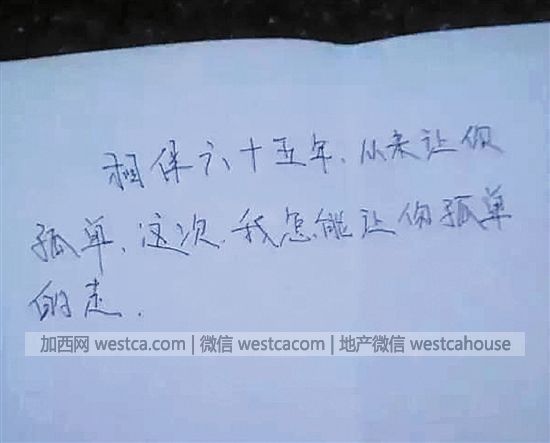 相保六十五年、从未让你
孤单、这次、我怎能让你孤单
的走.
加西网 westca.com | 微信 westcacom | 地产微信 westcahouse